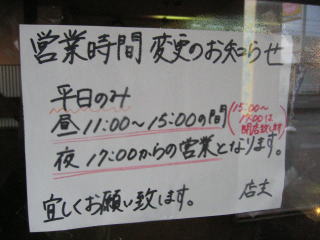 営業時間 変更のお知らせ
平日のみ
昼 11:00～15:00の間
(15:00～
17:00は
閉店致します)
夜 17:00からの営業となります。
宜しくお願い致します。
店主